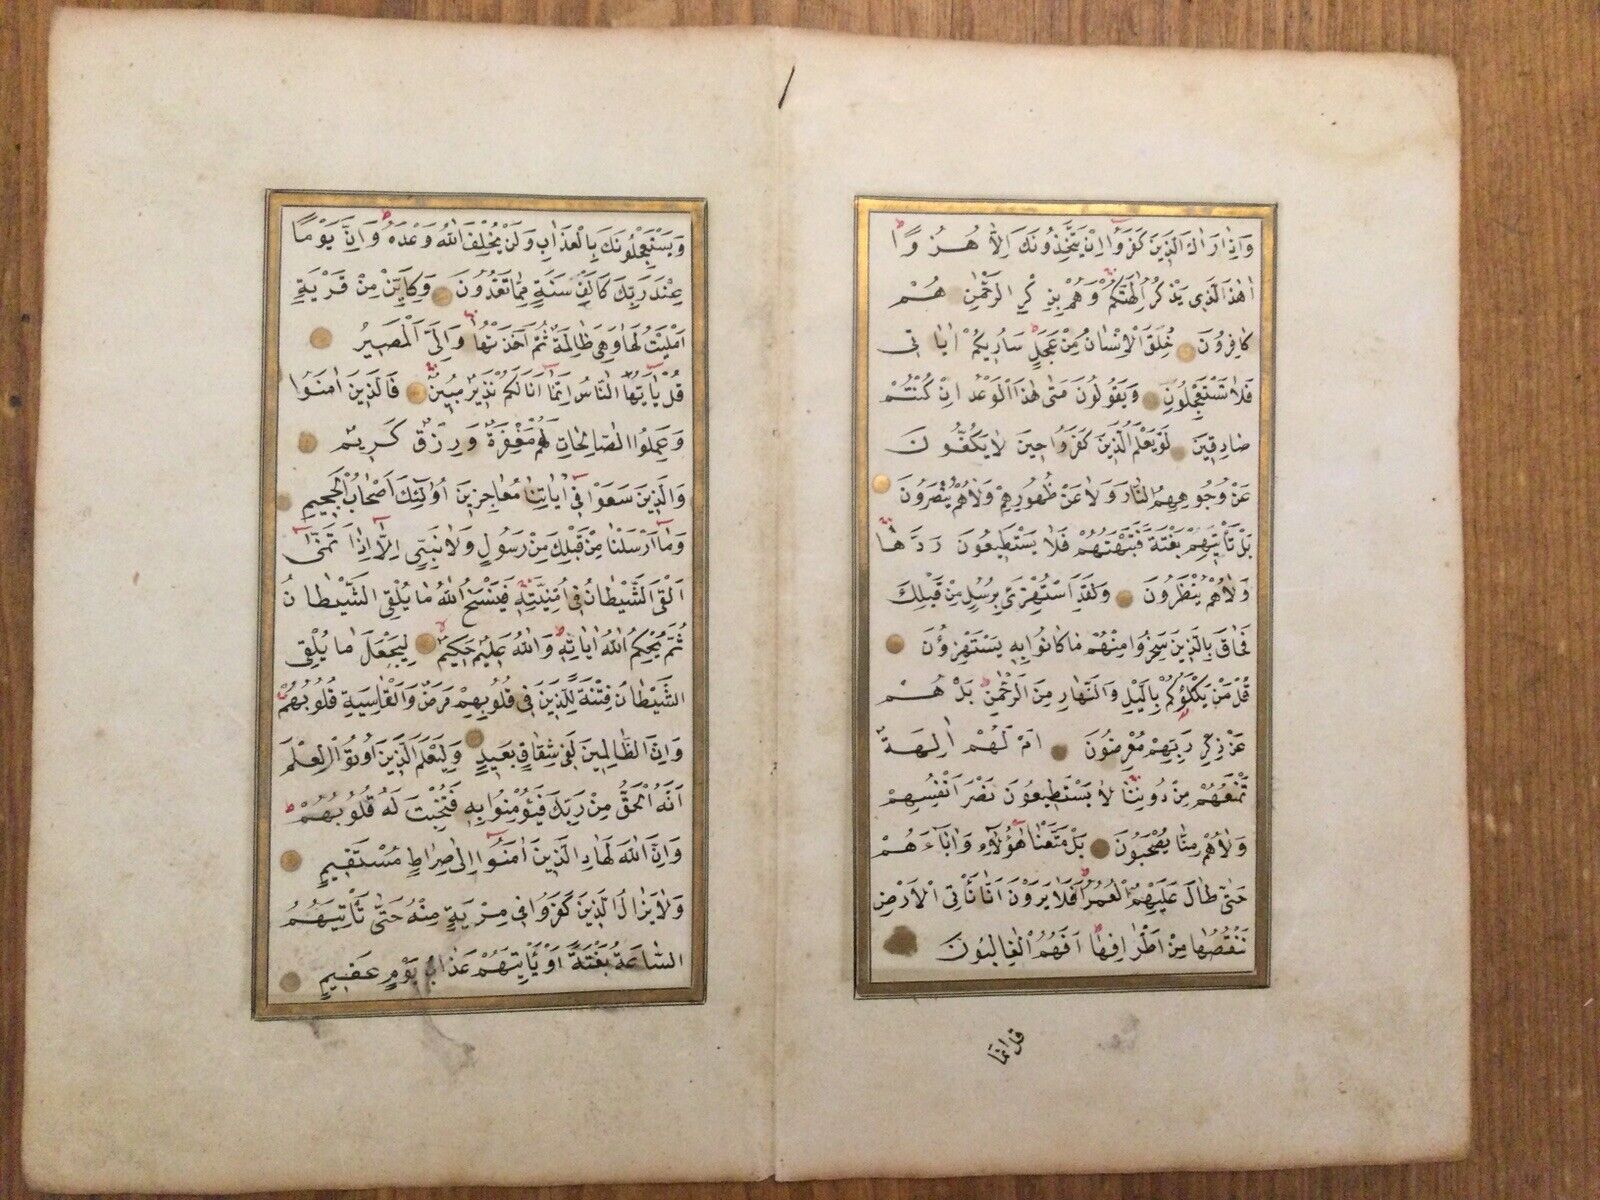 وَاِذَا رَاٰكَ الَّذِينَ كَفَرُٓوا اِنْ يَتَّخِذُونَكَ اِلَّا هُزُوًا
اَهٰذَا الَّذِي يَذْكُرُ اٰلِهَتَكُمْ وَهُمْ بِذِكْرِ الرَّحْمٰنِ هُمْ
كَافِرُونَ خُلِقَ الْاِنْسَانُ مِنْ عَجَلٍ سَاُرِيكُمْ اٰيَاتِي
فَلَا تَسْتَعْجِلُونِ وَيَقُولُونَ مَتٰى هٰذَا الْوَعْدُ اِنْ كُنْتُمْ
صَادِقِينَ لَوْ يَعْلَمُ الَّذِينَ كَفَرُوا حِينَ لَا يَكُفُّونَ
عَنْ وُجُوهِهِمُ النَّارَ وَلَا عَنْ ظُهُورِهِمْ وَلَا هُمْ يُنْصَرُونَ
بَلْ تَأْتِيهِمْ بَغْتَةً فَتَبْهَتُهُمْ فَلَا يَسْتَطِيعُونَ رَدَّهَا
وَلَا هُمْ يُنْظَرُونَ وَلَقَدِ اسْتُهْزِئَ بِرُسُلٍ مِنْ قَبْلِكَ
فَحَاقَ بِالَّذِينَ سَخِرُوا مِنْهُمْ مَا كَانُوا بِهِ يَسْتَهْزِؤُنَ
قُلْ مَنْ يَكْلَؤُكُمْ بِالَّيْلِ وَالنَّهَارِ مِنَ الرَّحْمٰنِ بَلْ هُمْ
عَنْ ذِكْرِ رَبِّهِمْ مُعْرِضُونَ اَمْ لَهُمْ اٰلِهَةٌ
تَمْنَعُهُمْ مِنْ دُونِنَا لَا يَسْتَطِيعُونَ نَصْرَ اَنْفُسِهِمْ
وَلَا هُمْ مِنَّا يُصْحَبُونَ بَلْ مَتَّعْنَا هٰٓؤُلَٓاءِ وَاٰبَٓاءَهُمْ
حَتّٰى طَالَ عَلَيْهِمُ الْعُمُرُ اَفَلَا يَرَوْنَ اَنَّا نَأْتِي الْاَرْضَ
نَنْقُصُهَا مِنْ اَطْرَافِهَا اَفَهُمُ الْغَالِبُونَ
قل انما
وَيَسْتَعْجِلُونَكَ بِالْعَذَابِ وَلَنْ يُخْلِفَ اللّٰهُ وَعْدَهُ وَاِنَّ يَوْمًا
عِنْدَ رَبِّكَ كَاَلْفِ سَنَةٍ مِمَّا تَعُدُّونَ وَكَاَيِّنْ مِنْ قَرْيَةٍ
اَمْلَيْتُ لَهَا وَهِيَ ظَالِمَةٌ ثُمَّ اَخَذْتُهَا وَاِلَيَّ الْمَصِيرُ
قُلْ يَٓا اَيُّهَا النَّاسُ اِنَّمَٓا اَنَا لَكُمْ نَذِيرٌ مُبِينٌ فَالَّذِينَ اٰمَنُوا
وَعَمِلُوا الصَّالِحَاتِ لَهُمْ مَغْفِرَةٌ وَرِزْقٌ كَرِيمٌ
وَالَّذِينَ سَعَوْا فِٓي اٰيَاتِنَا مُعَاجِزِينَ اُولٰٓئِكَ اَصْحَابُ الْجَحِيمِ
وَمَٓا اَرْسَلْنَا مِنْ قَبْلِكَ مِنْ رَسُولٍ وَلَا نَبِيٍّ اِلَّٓا اِذَا تَمَنّٰٓى
اَلْقَى الشَّيْطَانُ فِٓي اُمْنِيَّتِهِ فَيَنْسَخُ اللّٰهُ مَا يُلْقِي الشَّيْطَانُ
ثُمَّ يُحْكِمُ اللّٰهُ اٰيَاتِهِ وَاللّٰهُ عَلِيمٌ حَكِيمٌ لِيَجْعَلَ مَا يُلْقِي
الشَّيْطَانُ فِتْنَةً لِلَّذِينَ فِي قُلُوبِهِمْ مَرَضٌ وَالْقَاسِيَةِ قُلُوبُهُمْ
وَاِنَّ الظَّالِمِينَ لَفِي شِقَاقٍ بَعِيدٍ وَلِيَعْلَمَ الَّذِينَ اُوتُوا الْعِلْمَ
اَنَّهُ الْحَقُّ مِنْ رَبِّكَ فَيُؤْمِنُوا بِهِ فَتُخْبِتَ لَهُ قُلُوبُهُمْ
وَاِنَّ اللّٰهَ لَهَادِ الَّذِينَ اٰمَنُٓوا اِلٰى صِرَاطٍ مُسْتَقِيمٍ
وَلَا يَزَالُ الَّذِينَ كَفَرُوا فِي مِرْيَةٍ مِنْهُ حَتّٰى تَأْتِيَهُمُ
السَّاعَةُ بَغْتَةً اَوْ يَأْتِيَهُمْ عَذَابُ يَوْمٍ عَقِيمٍ